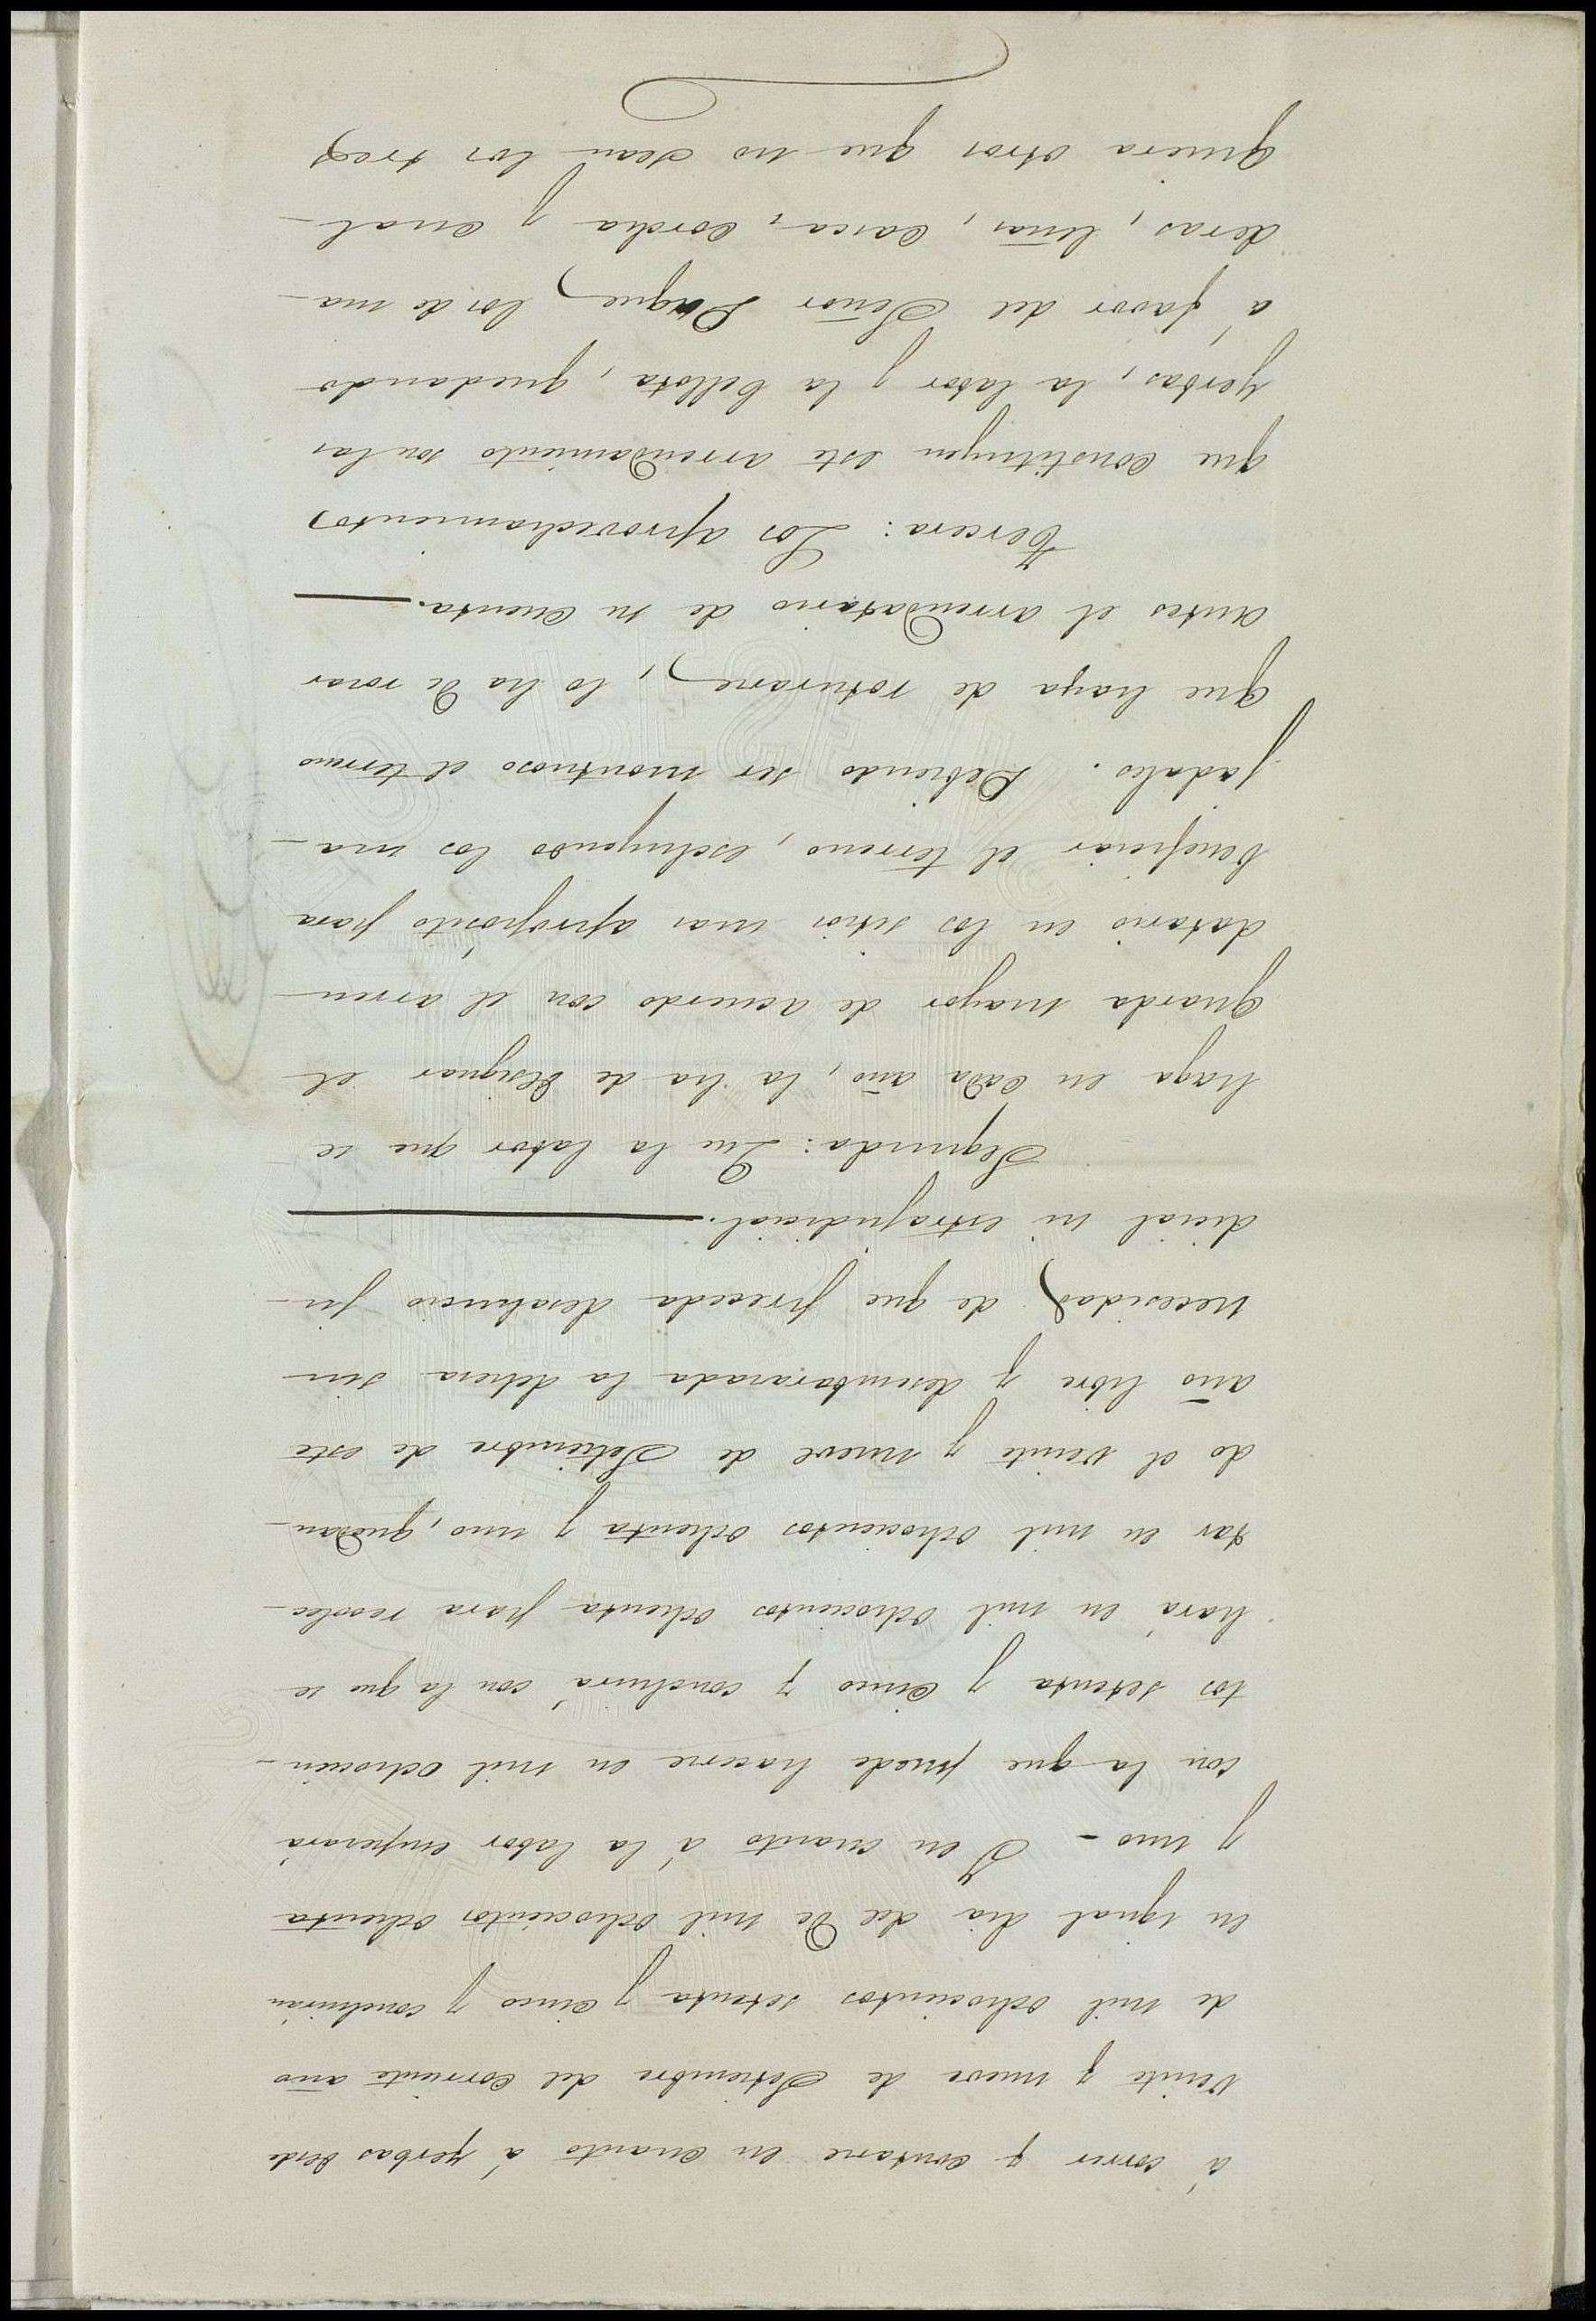 á correr y contarse en cuanto á yerbas desde
veinte y nueve de Setiembre del corriente año
de mil ochocientos setenta y cinco y concluirán
en igual dia del de mil ochocientos ochenta
y uno - Y en cuanto á la labor empezará
con la que puede hacerse en mil ochocien-
tos setenta y cinco y concluirá con la que se
hará en mil ochocientos ochenta para recolec-
tar en mil ochocientos ochenta y uno, quedan-
do el veinte y nueve de Setiembre de este
año libre y desembarazada la dehesa sin
necesidad de que preceda desahucio ju-
dicial ni estrajudicial.
Segunda: Que la labor que se
haga en cada año, la ha de designar el
guarda mayor de acuerdo con el arren-
datario en los sitios mas apropósito para
beneficiar el terreno, escluyendo los ma-
jadales. Debiendo ser montuoso el terreno
que haya de roturarse, lo ha de rozar
antes el arrendatario de su cuenta.
Tercera: Los aprovechamientos
que constituyen este arrendamiento son las
yerbas, la labor y la bellota, quedando
á favor del Señor Duque los de ma-
deras, leñas, casca, corcha y cual-
quiera otros que no sean los tres